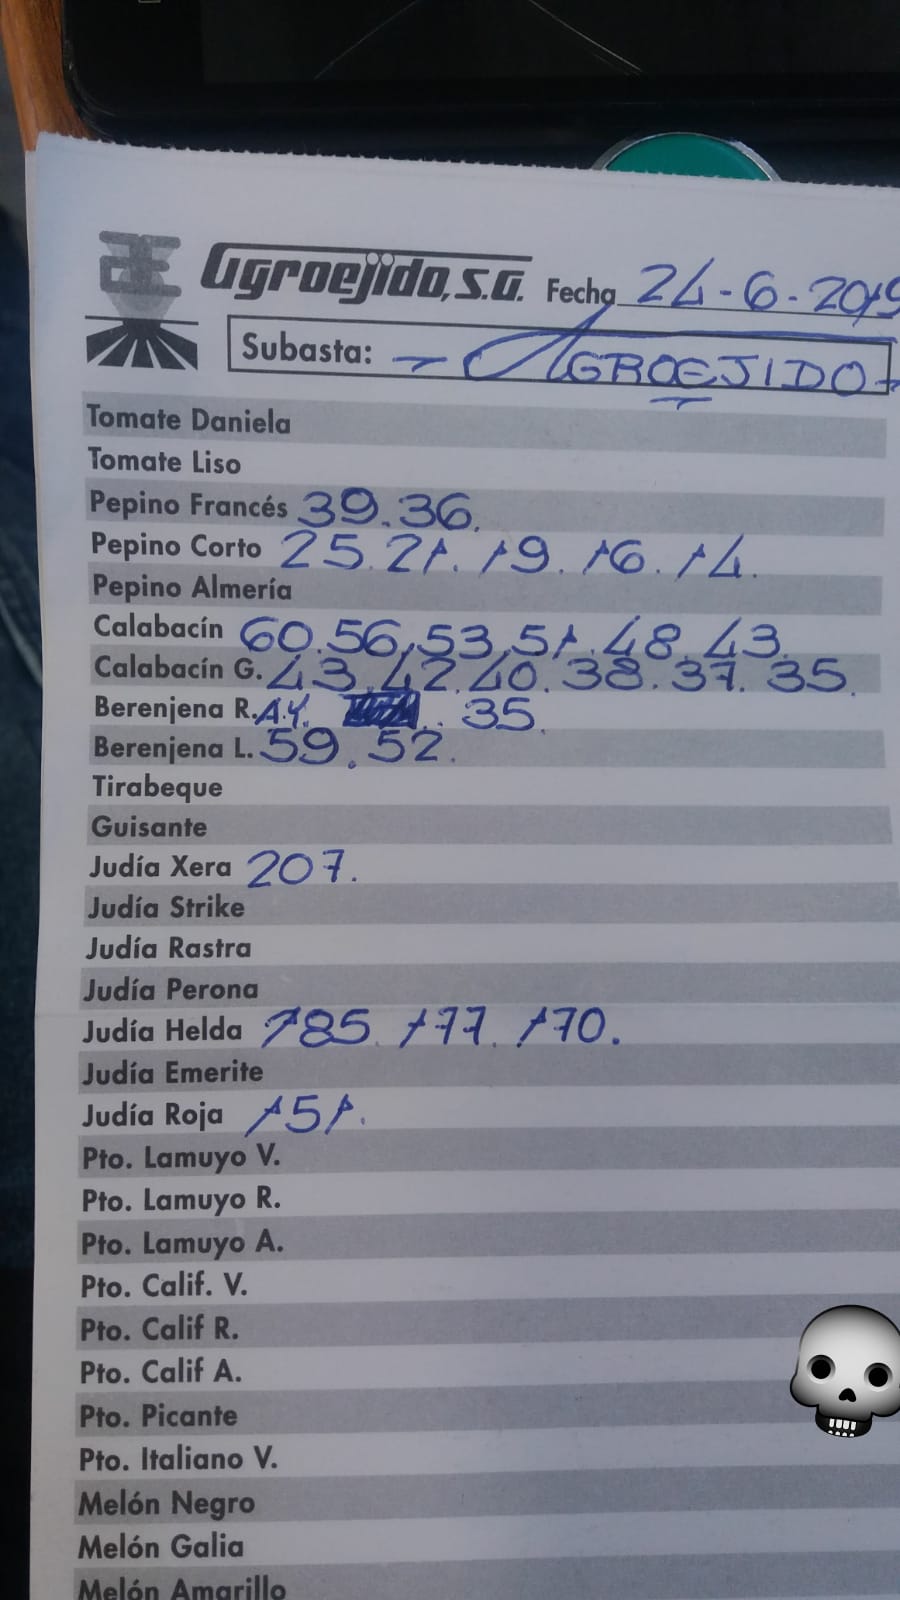 Agroejido, S.A. Fecha 24-6-2019
Subasta: - AGROEJIDO -
Tomate Daniela
Tomate Liso
Pepino Francés 39.36.
Pepino Corto 25.21.19.16.14.
Pepino Almería
Calabacín 60.56,53,51.48.43.
Calabacín G. 43.42.40.38.37.35.
Berenjena R. A.Y. . 35.
Berenjena L. 59.52.
Tirabeque
Guisante
Judía Xera 207.
Judía Strike
Judía Rastra
Judía Perona
Judía Helda 185.177.170.
Judía Emerite
Judía Roja 151.
Pto. Lamuyo V.
Pto. Lamuyo R.
Pto. Lamuyo A.
Pto. Calif. V.
Pto. Calif R.
Pto. Calif A.
Pto. Picante
Pto. Italiano V.
Melón Negro
Melón Galia
Melón Amarillo